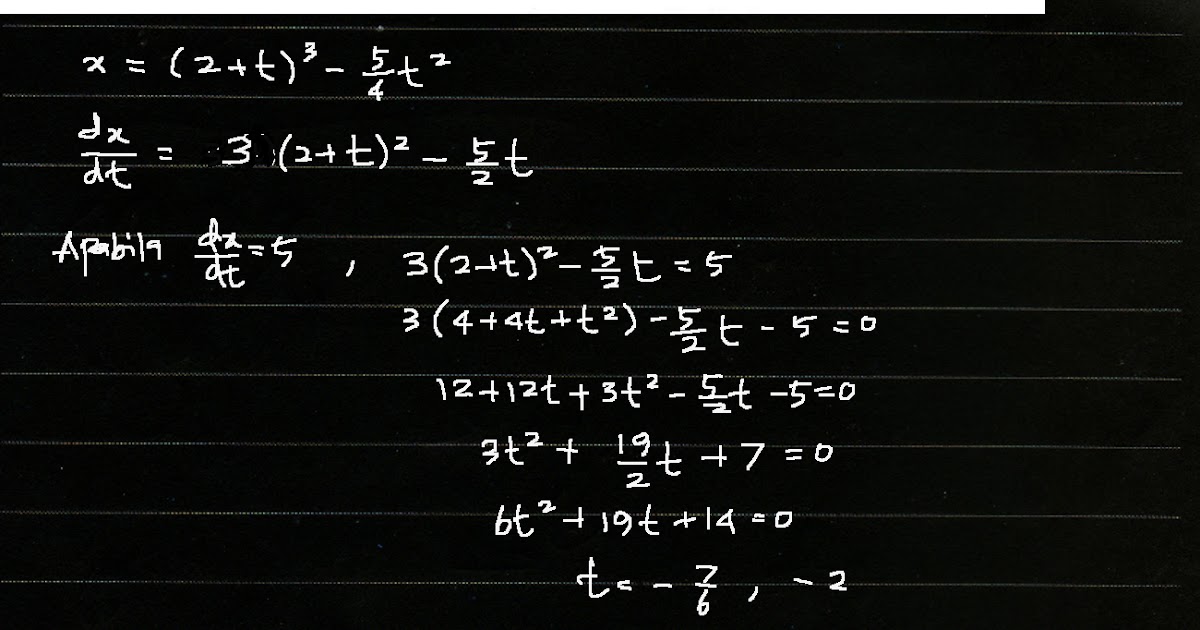 x = (2+t)³ - 5/4 t²
dx/dt = 3 (2+t)² - 5/2 t
Apabila dx/dt = 5 , 3(2+t)² - 5/2 t = 5
3(4+4t+t²) - 5/2 t - 5 = 0
12+12t+3t² - 5/2 t - 5 = 0
3t² + 19/2 t + 7 = 0
6t² + 19t + 14 = 0
t = - 7/6 , - 2